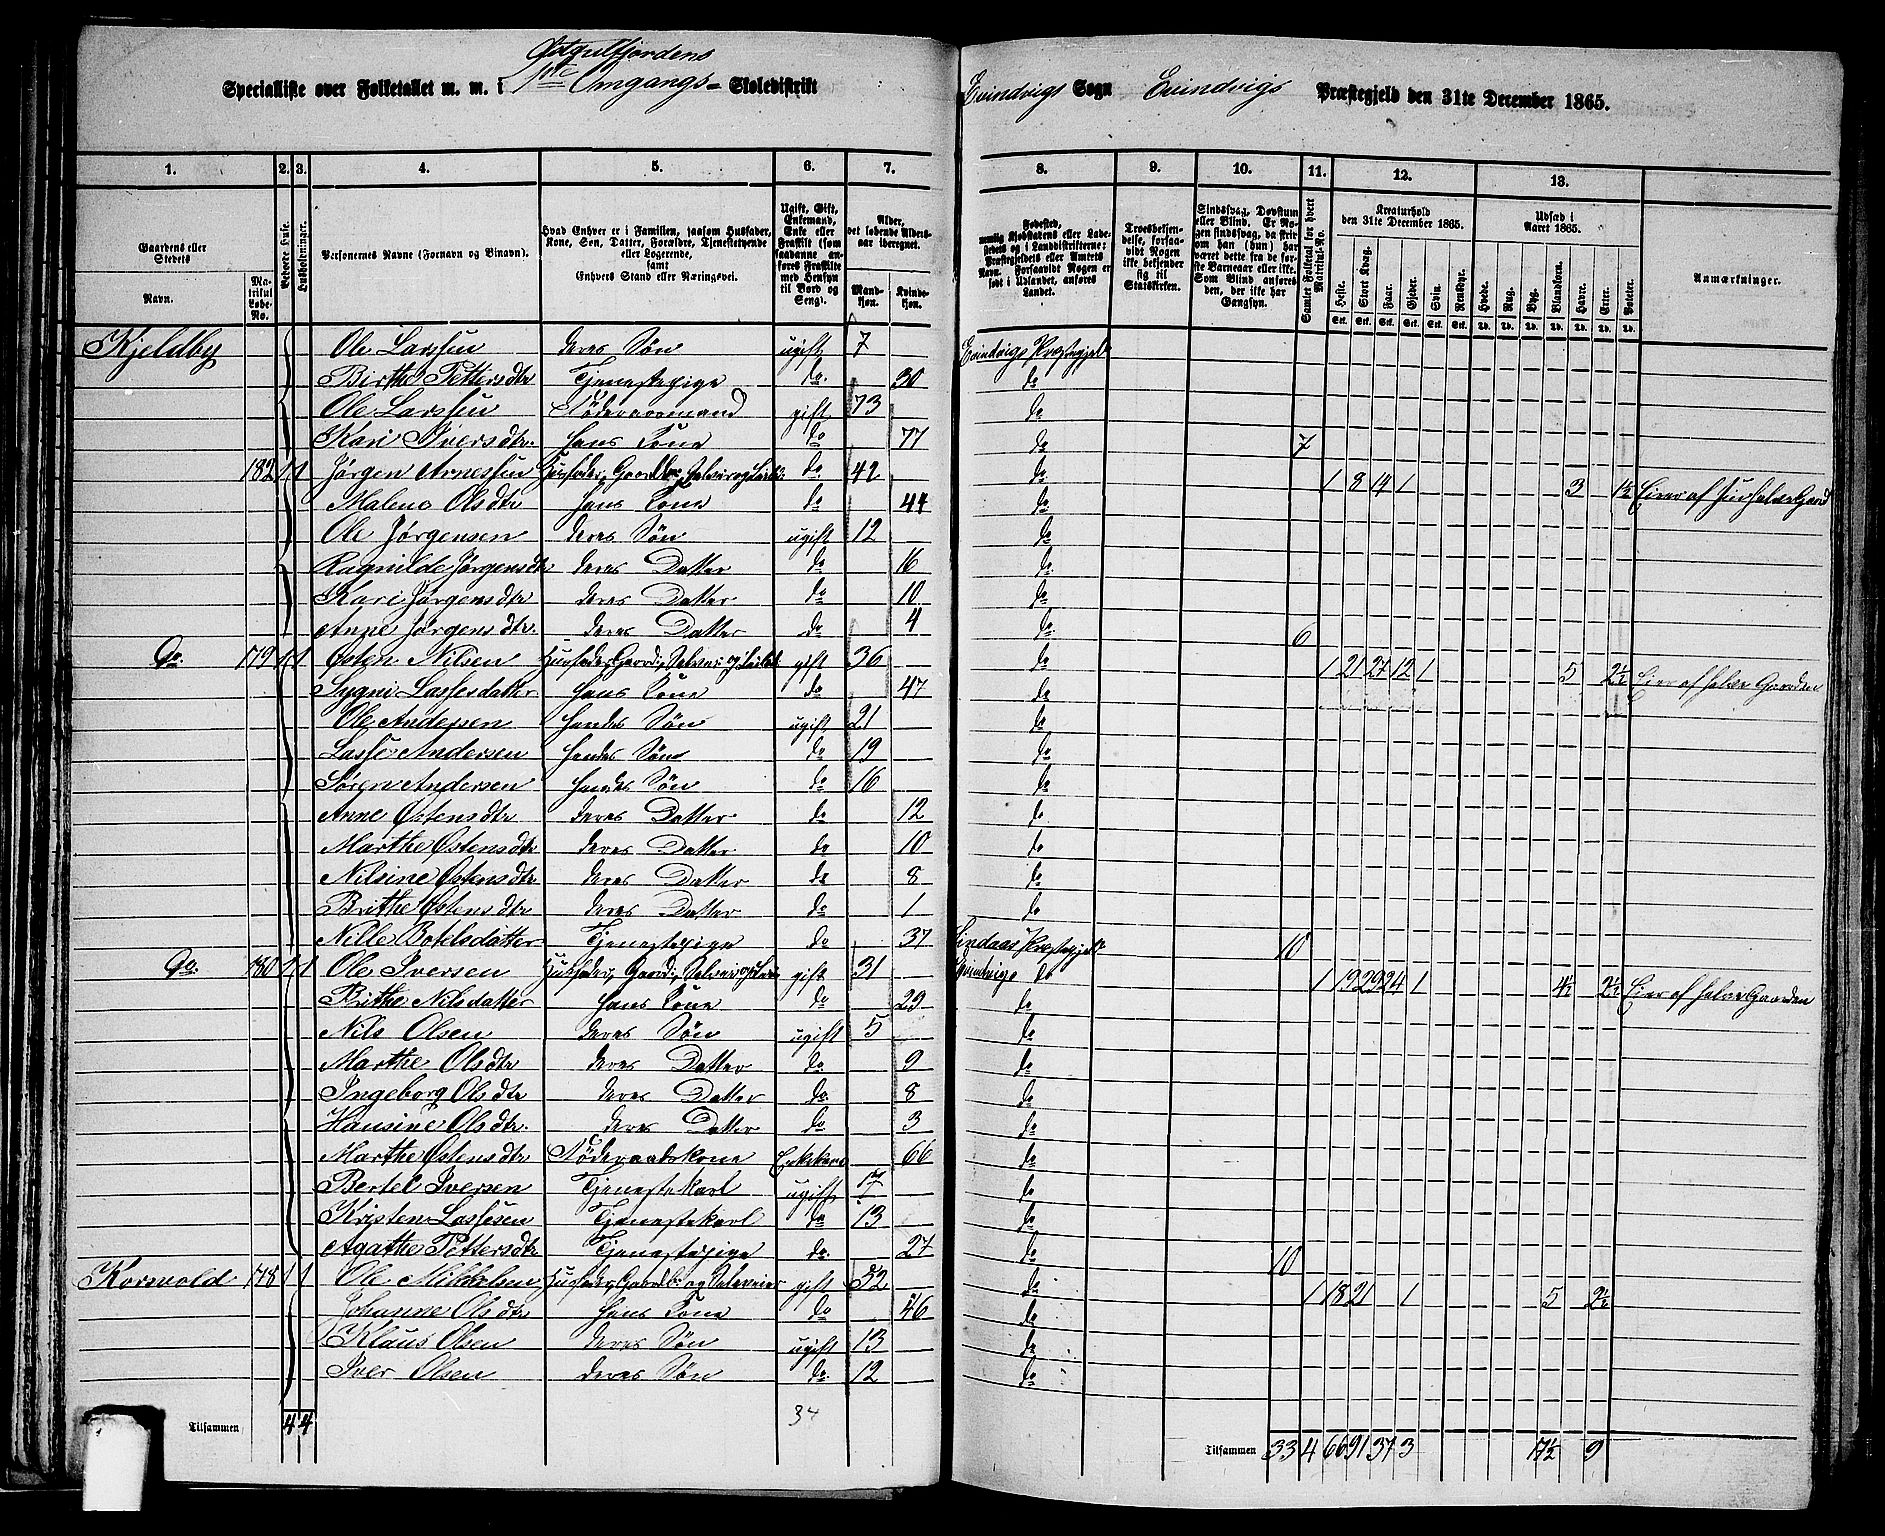 Østgulfjordens
Specialliste over Folketallet m. m. i 1ste Omgangs- Skoledistrikt Evindvigs Sogn Evindvigs Præstegjeld den 31te December 1865.
1. 2. 3. 4. 5. 6. 7. 8. 9. 10. 11. 12. 13.
Gaardens eller Stedets Navn. Matrikul Løbe-No. Beboede Huse. Husholdninger. Personernes Navne (Fornavn og Binavn). Hvad Enhver er i Familien, saasom Husfader, Kone, Søn, Datter, Forældre, Tjenestetyende eller Logerende, samt Enhvers Stand eller Næringsvei. Ugift, Gift, Enkemand, Enke eller Fraskilt (som saadanne anføres Fraskilte med Hensyn til Bord og Seng). Alder, det løbende Aldersaar iberegnet. Mandkjøn. Kvindekjøn.
Fødested, nemlig Kjøbstadens eller Ladestedets eller i Landdistrikterne: Præstegjeldets eller Amtets Navn. Forsaavidt Nogen er født i Udlandet, anføres Landet. Troesbekjendelse, forsaavidt Nogen ikke bekjender sig til Statskirken. Sindssvag, Døvstum eller Blind. Er Nogen sindssvag, da skrives om han (hun) har været dette fra de første Barneaar eller ei. Som Blind anføres den, der ikke har Gangsyn. Samlet Folketal for hvert Matrikul-No. Kreaturhold den 31te December 1865. Heste. Stort Kvæg. Faar. Gjeder. Svin. Rensdyr. Udsæd i Aaret 1865. Hvede. Rug. Byg. Blandkorn. Havre. Erter. Poteter. Anmærkninger.
Kjeldby Ole Larssen deres Søn ugift 7 Evindvigs Præstegjeld
Birthe Pettersdtr Tjenestepige do 30 do
Ole Larssen Føderaadsmand gift 73 do
Kari Iversdtr. hans Kone do 77 do 7
182 1 1 Jørgen Arnessen Husfader, Gaardbr., Selveier do 42 do 1 8 14 1 3 1½
Malene Olsdtr hans Kone do 44 do
Ole Jørgensen deres Søn ugift 12 do
Ragnilde Jørgensdtr deres Datter do 16 do
Kari Jørgensdtr deres Datter do 10 do
Anne Jørgensdtr. deres Datter do 4 do 6
Do. 179 1 1 Østen Nilsen Husfader, Gaardbr., Selveier gift 36 do 1 21 27 12 1 5 2½ Eier af halve Gaarden
Sygni Lassesdatter hans Kone do 47 do
Ole Andersen hendes Søn ugift 21 do
Lasse Andersen hendes Søn do 19 do
Søren Andersen hendes Søn do 16 do
Anne Østensdtr deres Datter do 12 do
Marthe Østensdtr deres Datter do 10 do
Nilsine Østensdtr deres Datter do 8 do
Brithe Østensdtr deres Datter do 1 do
Nille Botelsdatter Tjenestepige do 37 Lindaas Præstegjeld 10
Do. 180 1 1 Ole Iversen Husfader, Gaardbr., Selveier gift 31 Evindvigs do 1 19 29 24 1 4½ 2½ Eier af halve Gaarden
Brithe Nilsdatter hans Kone do 29 do
Nils Olsen deres Søn ugift 5 do
Marthe Olsdtr deres Datter do 9 do
Ingeborg Olsdtr deres Datter do 8 do
Hansine Olsdtr. deres Datter do 3 do
Marthe Østensdtr Føderaadskone Enkekone 66 do
Bertel Iversen Tjenestekarl ugift 17 do
Kristen Lassesen Tjenestekarl do 13 do
Agathe Pettersdtr Tjenestepige do 27 do 10
Korsvold 178 1 1 Ole Mikkelsen Husfader, Gaardbr. og Selveier gift 52 do 1 18 21 1 5 2½
Johanne Olsdtr hans Kone do 46 do
Klaus Olsen deres Søn ugift 13 do
Iver Olsen deres Søn do 12 do
Tilsammen 4 4 34 Tilsammen 33 4 66 91 37 3 17½ 9